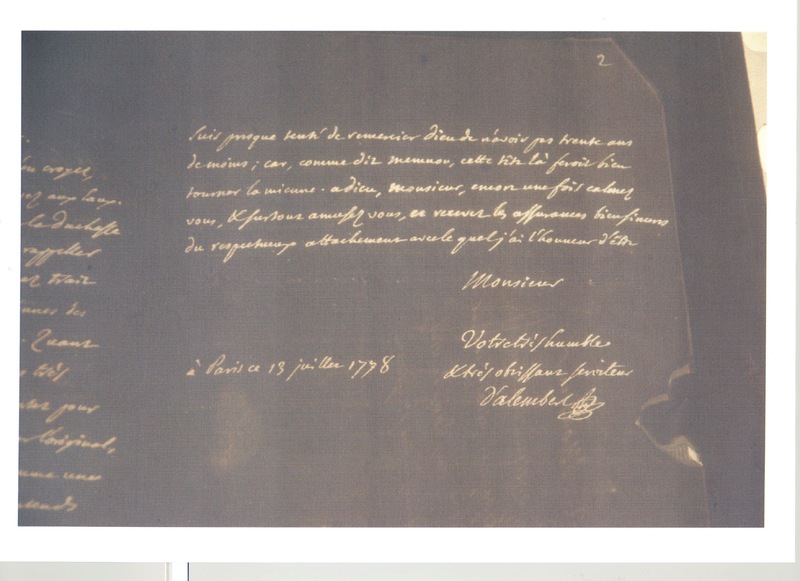 2
suis presque tenté de remercier dieu de n'avoir pas trente ans
de moins ; car, comme dit memnon, cette tête là feroit bien
tourner la mienne. adieu, monsieur, encore une fois calmez
vous, & surtout amusez vous, et recevez les assurances bien sinceres
du respectueux attachement avec le quel j'ai l'honneur d'être
Monsieur
Votre très humble
& très obéissant serviteur
à Paris ce 13 juillet 1778
D'alembert
croyez
aux
la duchesse
rappeller
trait
des
Quant
très
pour
l'original,
une